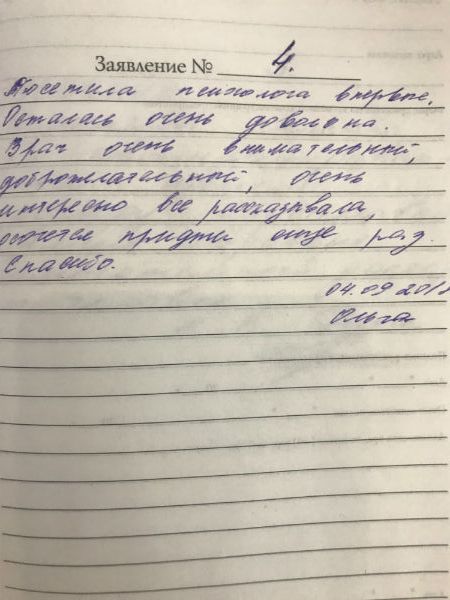 Заявление № 4.
Посетила психолога впервые.
Осталась очень довольна.
Врач очень внимательный,
доброжелательный, очень
интересно все рассказывала,
хочется прийти еще раз.
Спасибо.
04.09.2018
Ольга